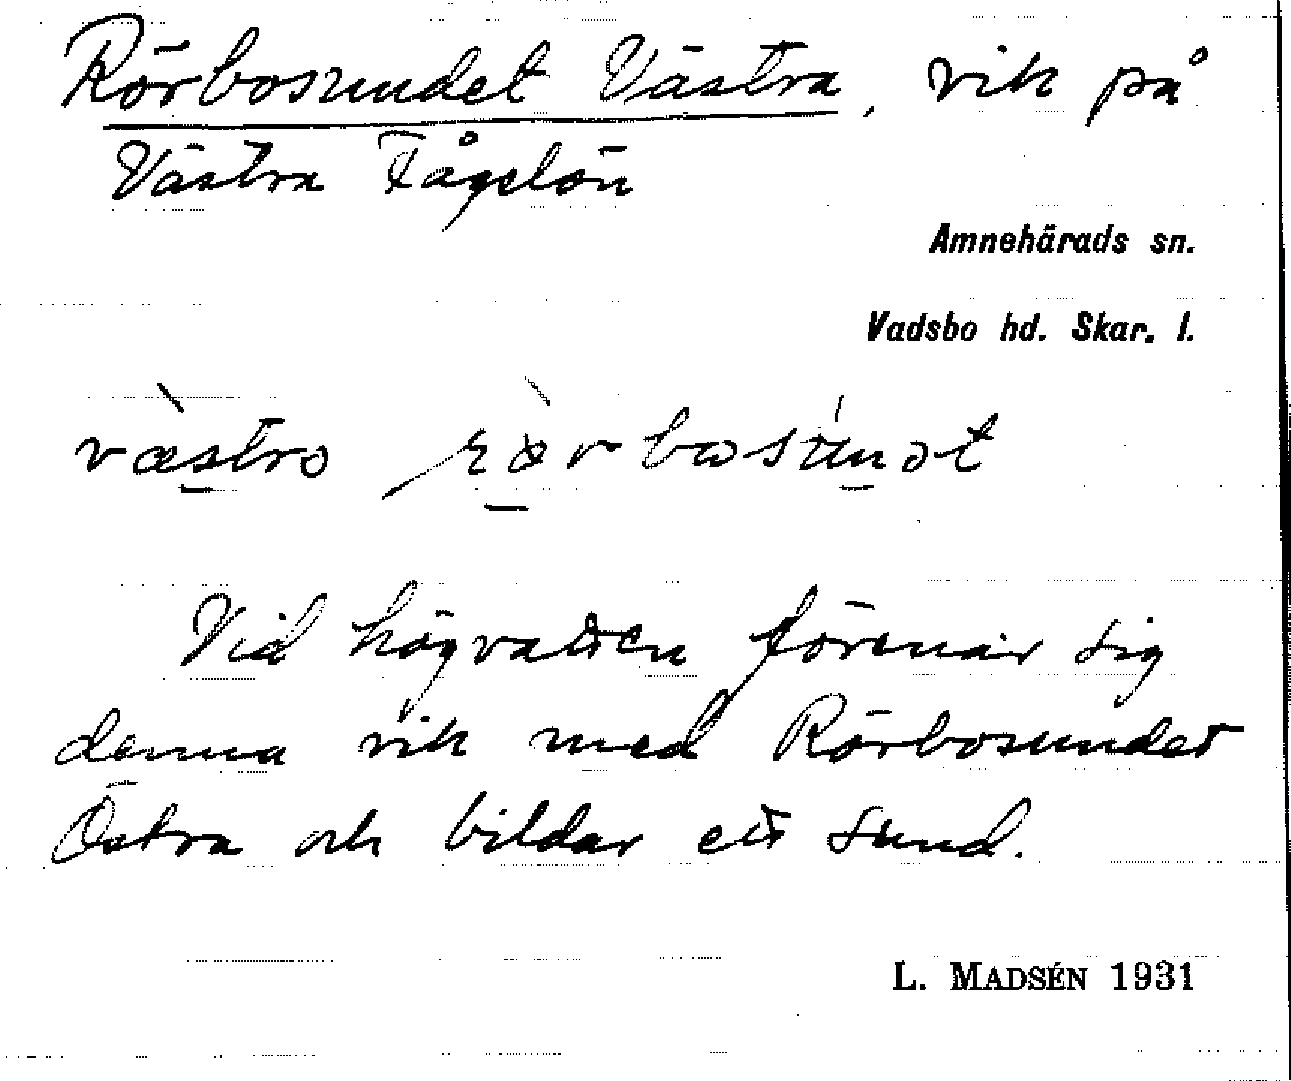 Rörbosundet Västra, vik på
Västra Fågelön
Amnehärads sn.
Vadsbo hd. Skar. l.
Vid högvatten förenar sig
denna vik med Rörbosundet
Östra och bildar ett sund.
L. MADSÉN 1931